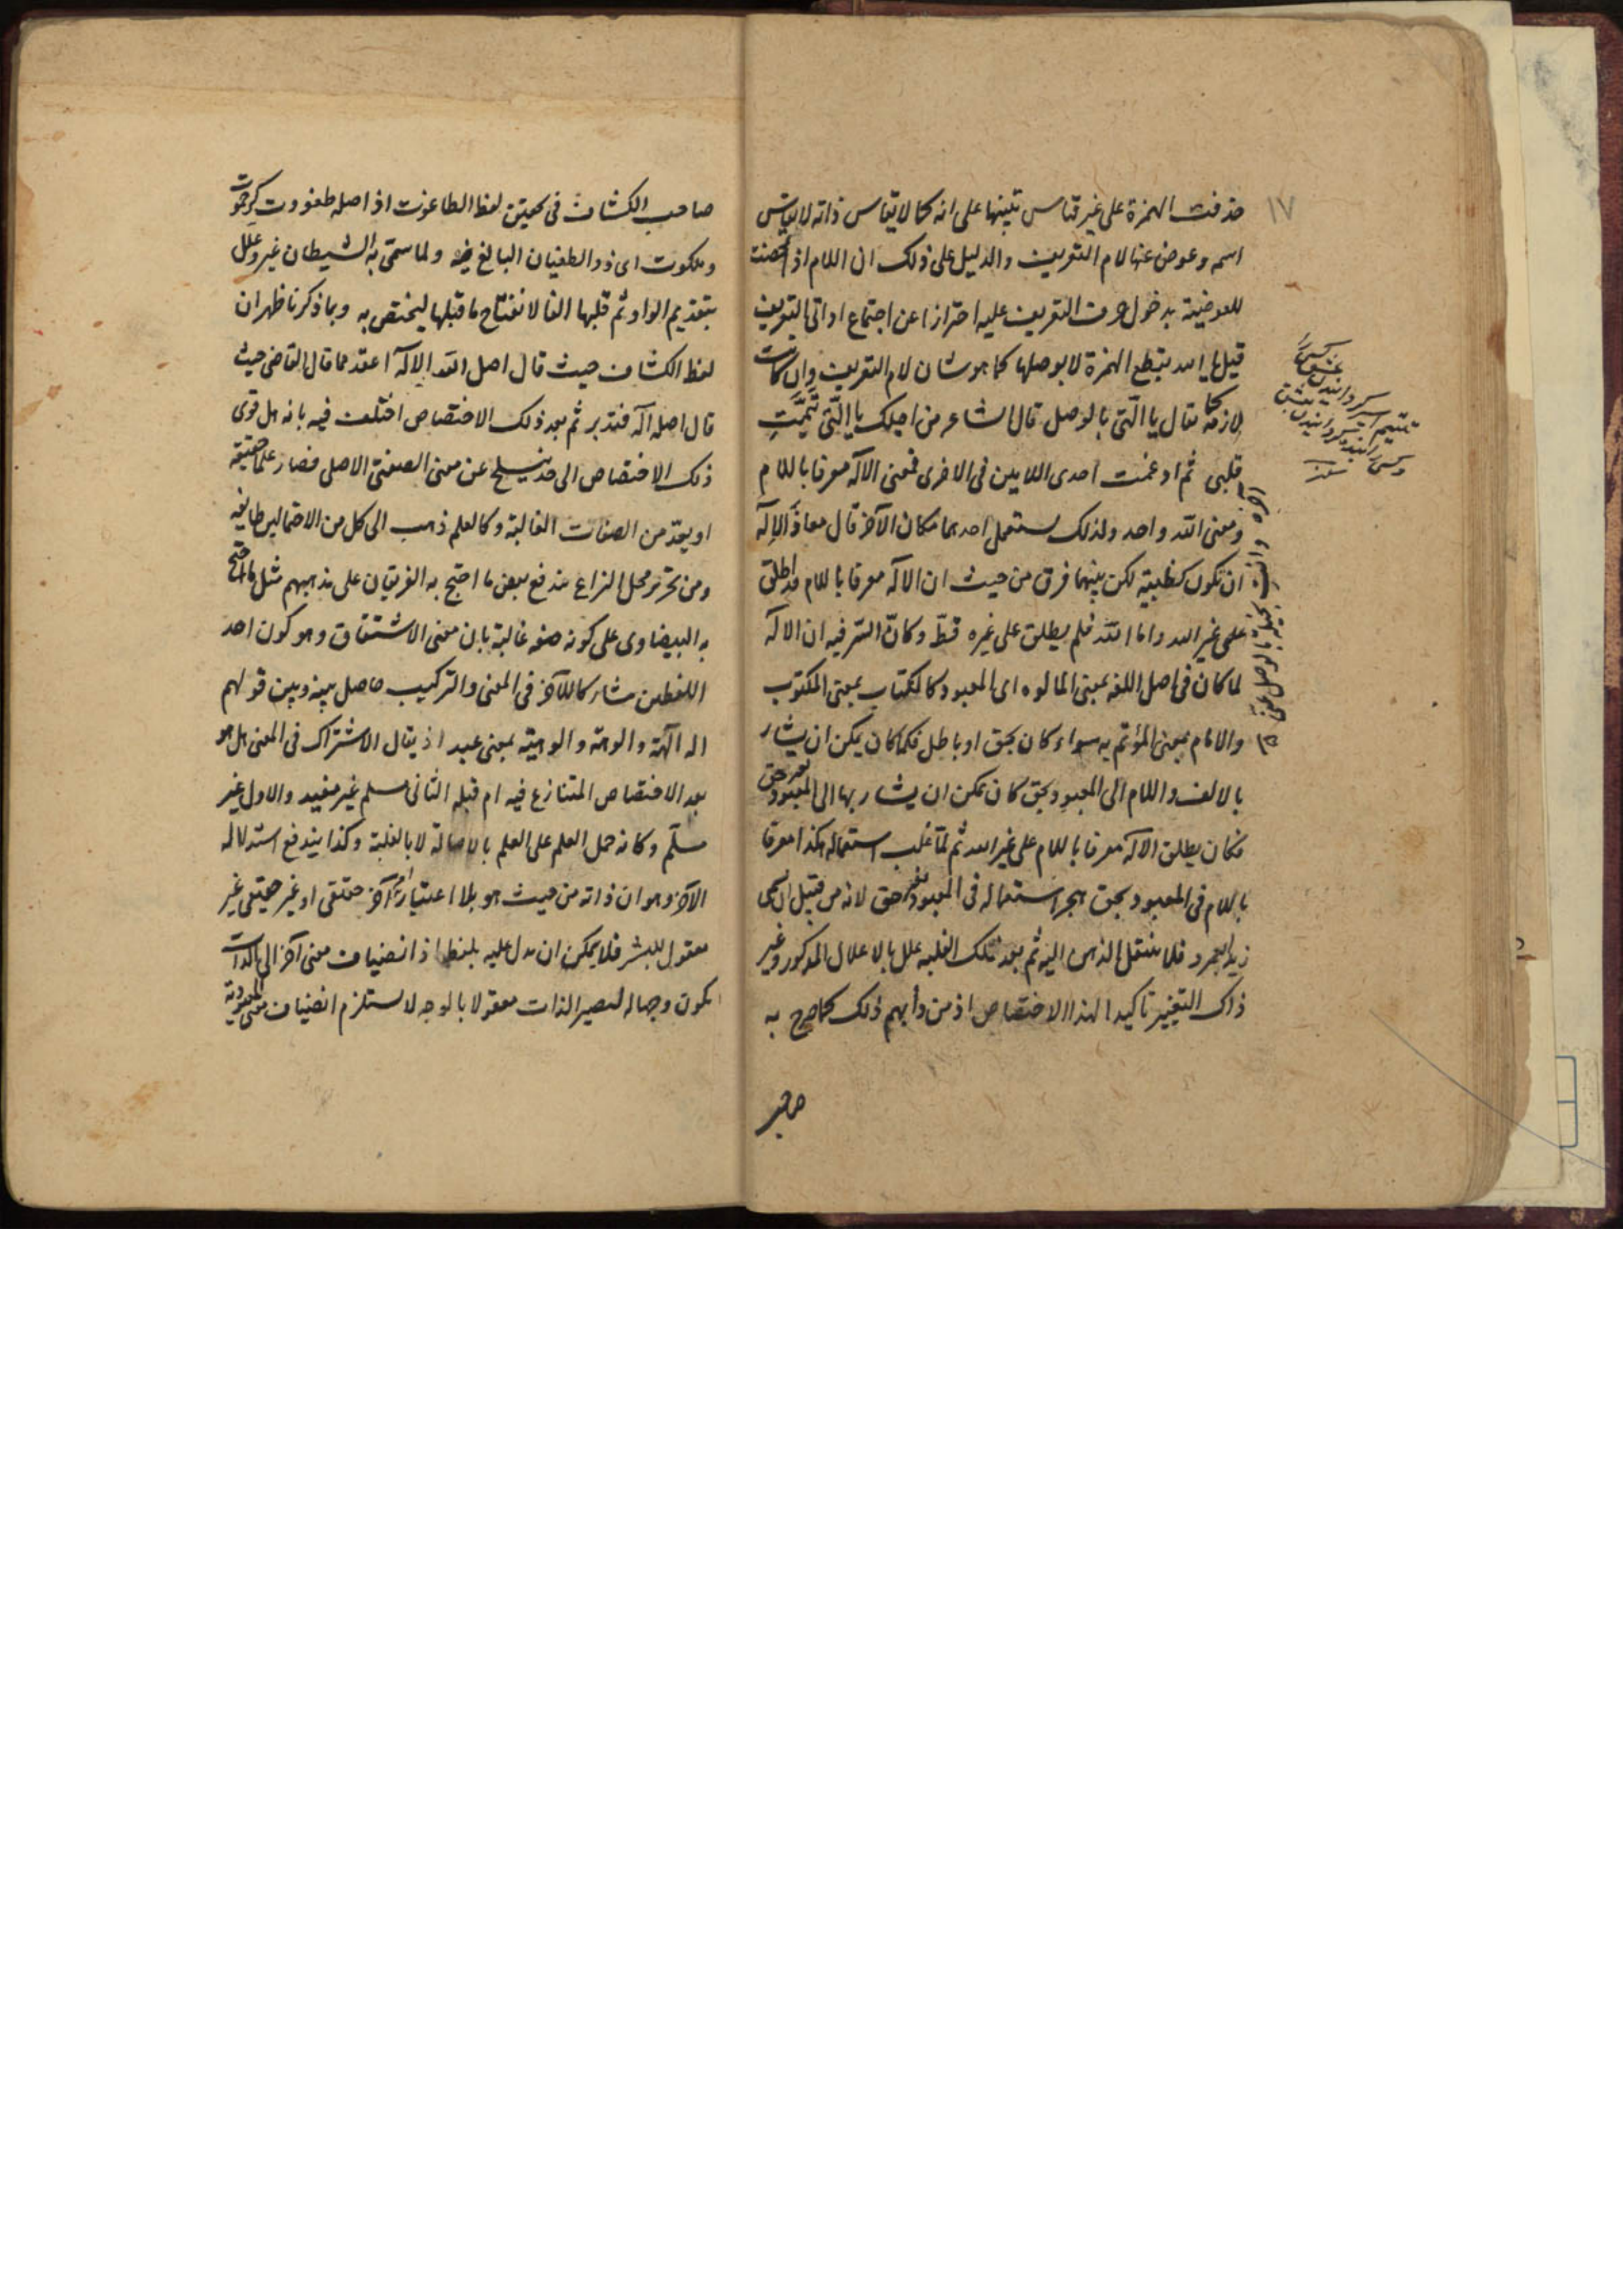 ١٧
حذفت الهمزة على غير قياس تنبيها على انه كما لا يقاس ذاته لا يقاس
اسمه وعوض عنها لام التعريف والدليل على ذلك ان اللام اذ تمحضت
للعوضية بدخول حرف التعريف عليه احترازا عن اجتماع اداتى التعريف
قيل يا الله بقطع الهمزة لا بوصلها كما هو شان لام التعريف وان كانت
لازمة كما يقال يا الّتى بالوصل قال الشاعر من اجلك يا الّتى تيّمتِ
قلبى ثم ادغمت احدى اللامين فى الاخرى فمعنى الاله معرفا باللام
ومعنى الله واحد ولذلك يستعمل احدهما مكان الآخر قال معاذَ الاله
ان تكون كظبية لكن بينهما فرق من حيث ان الاله معرفا باللام قد اطلق
على غير الله واما الله فلم يطلق على غيره قطّ وكانّ السّر فيه ان الاله
لما كان فى اصل اللغه بمعنى المالوه اى المعبود كالكتاب بمعنى المكتوب
والامام بمعنى المؤتم به سواء كان بحق او باطل فكما كان يمكن ان يشار
بالالف واللام الى المعبود بحق كان يمكن ان يشار بها الى المعبود بغير حق
فكان يطلق الاله معرفا باللام على غير الله ثم لمّا غلب استعماله هكذا معرفا
باللام فى المعبود بحق هجر استعماله فى المعبود بغير حق لانه من قبيل ان يسمى
زيدا بعمرو فلا ينتقل الذهن اليه ثم بعد تلك الغلبه علل بالاعلال المذكور وغير
ذاك التغيير تاكيدا لهذا الاختصاص اذ من دأبهم ذلك كما صرح به
صاحب
صاحب الكشاف فى تحقيق لفظ الطاغوت اذ اصله طغووت كرحموت
وملكوت اى ذو الطغيان البالغ فيه ولما سمّى به الشيطان غير وعُلّل
بتقديم الواو ثم قلبها الفا لانفتاح ما قبلها ليختص به وبما ذكرنا ظهر ان
لفظ الكشاف حيث قال اصل الله الاله اعقد مما قال القاضى حيث
قال اصله اله فتدبر ثم بعد ذلك الاختصاص اختلف فيه بانه هل قوى
ذلك الاختصاص الى حد ينسلخ عن معنى الصفتى الاصلى فصار علما حقيقة
او يعدّ من الصفات الغالبة وكالعلم ذهب الى كل من الاحتمالين طايفه
ومن تحرير محل النزاع يندفع بعض ما احتج به الفريقان على مذهبهم مثل ما احتج
به البيضاوى على كونه صفه غالبة بان معنى الاشتقاق وهو كون احد
اللفظين مشاركا للآخر فى المعنى والتركيب حاصل بينه وبين قولهم
اله الٰهة والوهة والوهية بمعنى عبد اذ يقال الاشتراك فى المعنى هل هو
بعد الاختصاص المتنازع فيه ام قبله الثانى مسلم غير مفيد والاول غير
مسلّم وكانه حمل العلم على العلم بالاصالة لا بالغلبة وكذا يندفع استدلاله
الآخر وهو ان ذاته من حيث هو بلا اعتبار امر آخر حقيقى او غير حقيقى غير
معقول للبشر فلا يمكن ان يدل عليه بلفظ اذ انضياف معنى آخر الى الذات
يكون وجها له ليصير الذات معقولا بالوجه لا يستلزم انضياف معنى المعبودية